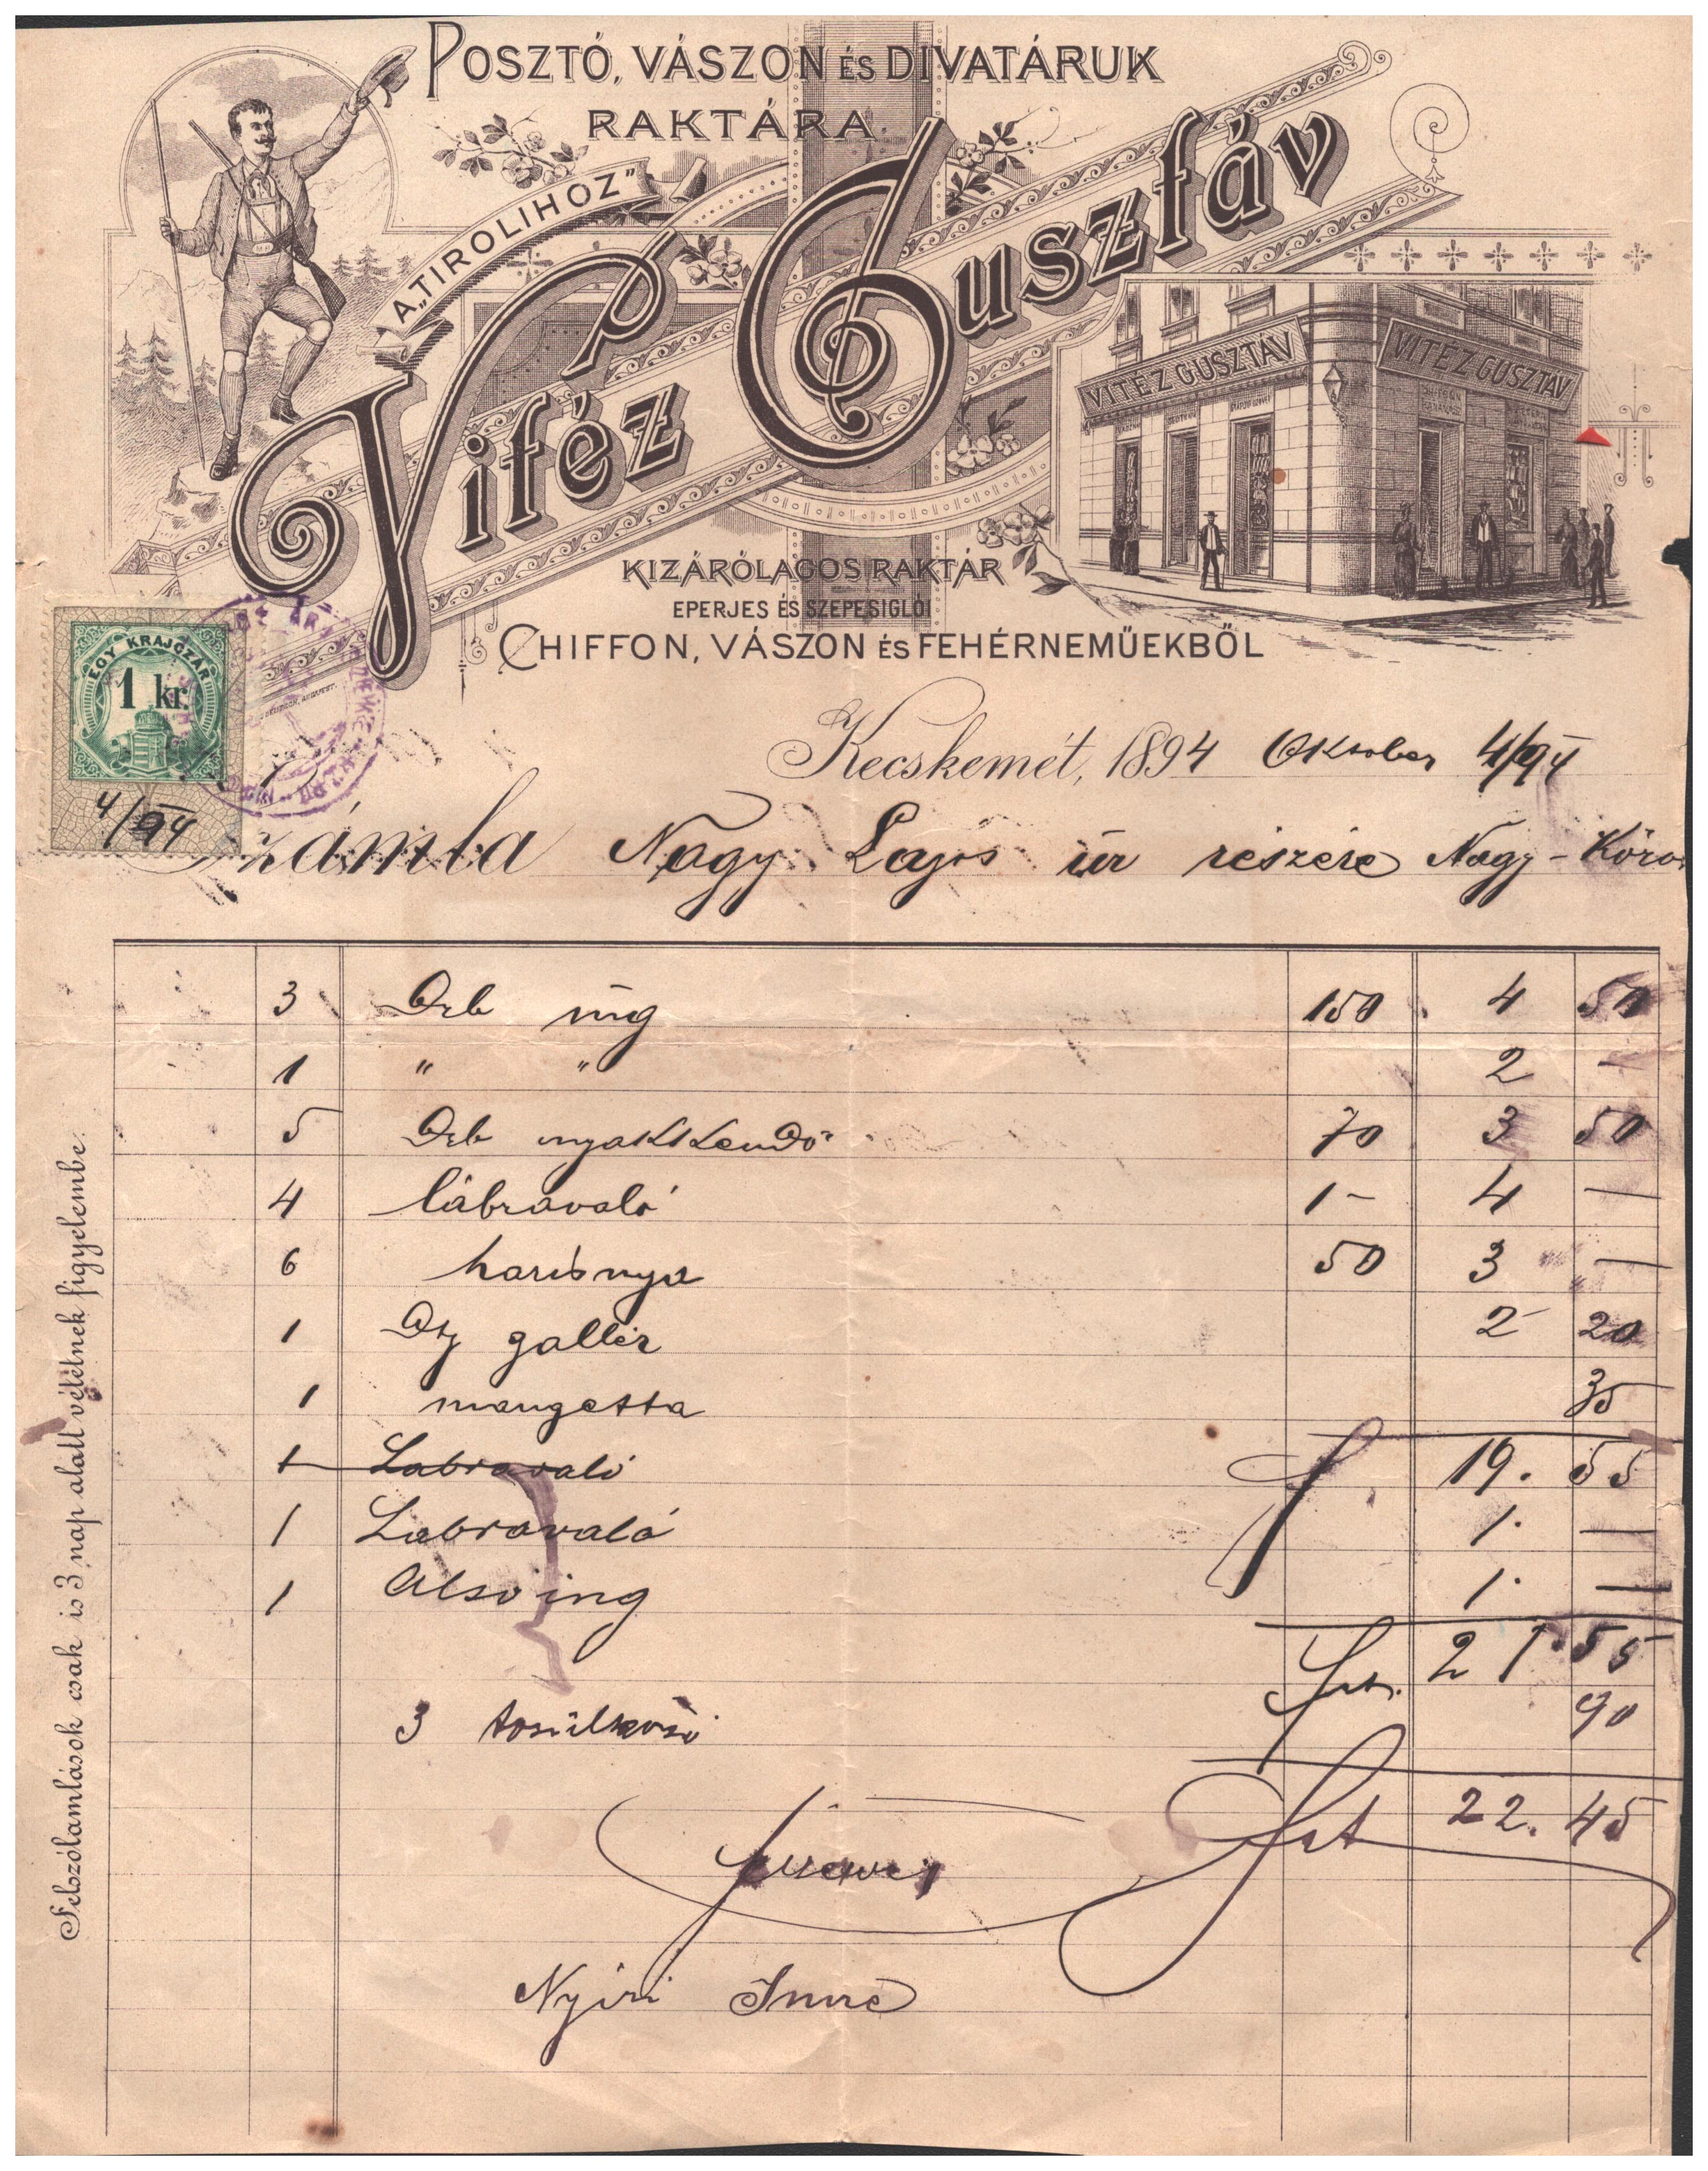 POSZTÓ, VÁSZON ÉS DIVATÁRUK
RAKTÁRA
A „TIROLIHOZ”
Vitéz Gusztáv
VITÉZ GUSZTÁV
VITÉZ GUSZTÁV
KIZÁRÓLAGOS RAKTÁR
EPERJES ÉS SZEPESIGLÓI
CHIFFON, VÁSZON ÉS FEHÉRNEMŰEKBŐL
EGY KRAJCZÁR
1 kr.
4/X 94
Kecskemét, 1894 Oktober 4/X 94
Számla Nagy Lajos úr részére Nagy-Körös
Felszólamlások csak is 3 nap alatt vétetnek figyelembe.
3 Drb ing 150 4 50
1 " " 2 —
5 Drb nyakkendő 70 3 50
4 lábravaló 1- 4 —
6 harisnya 50 3 —
1 gallér 2 20
1 mangetta 35
19. 55
1 Labravaló
1 Labravaló 1. —
1 Alsoing 1. —
Frt. 21.55
3 90
Frt 22.45
Nyiri Imre